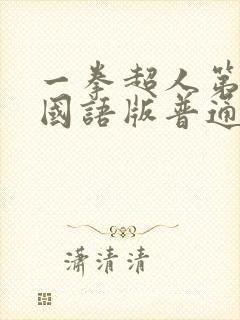 一拳超人第
國語版普通
瀟清清